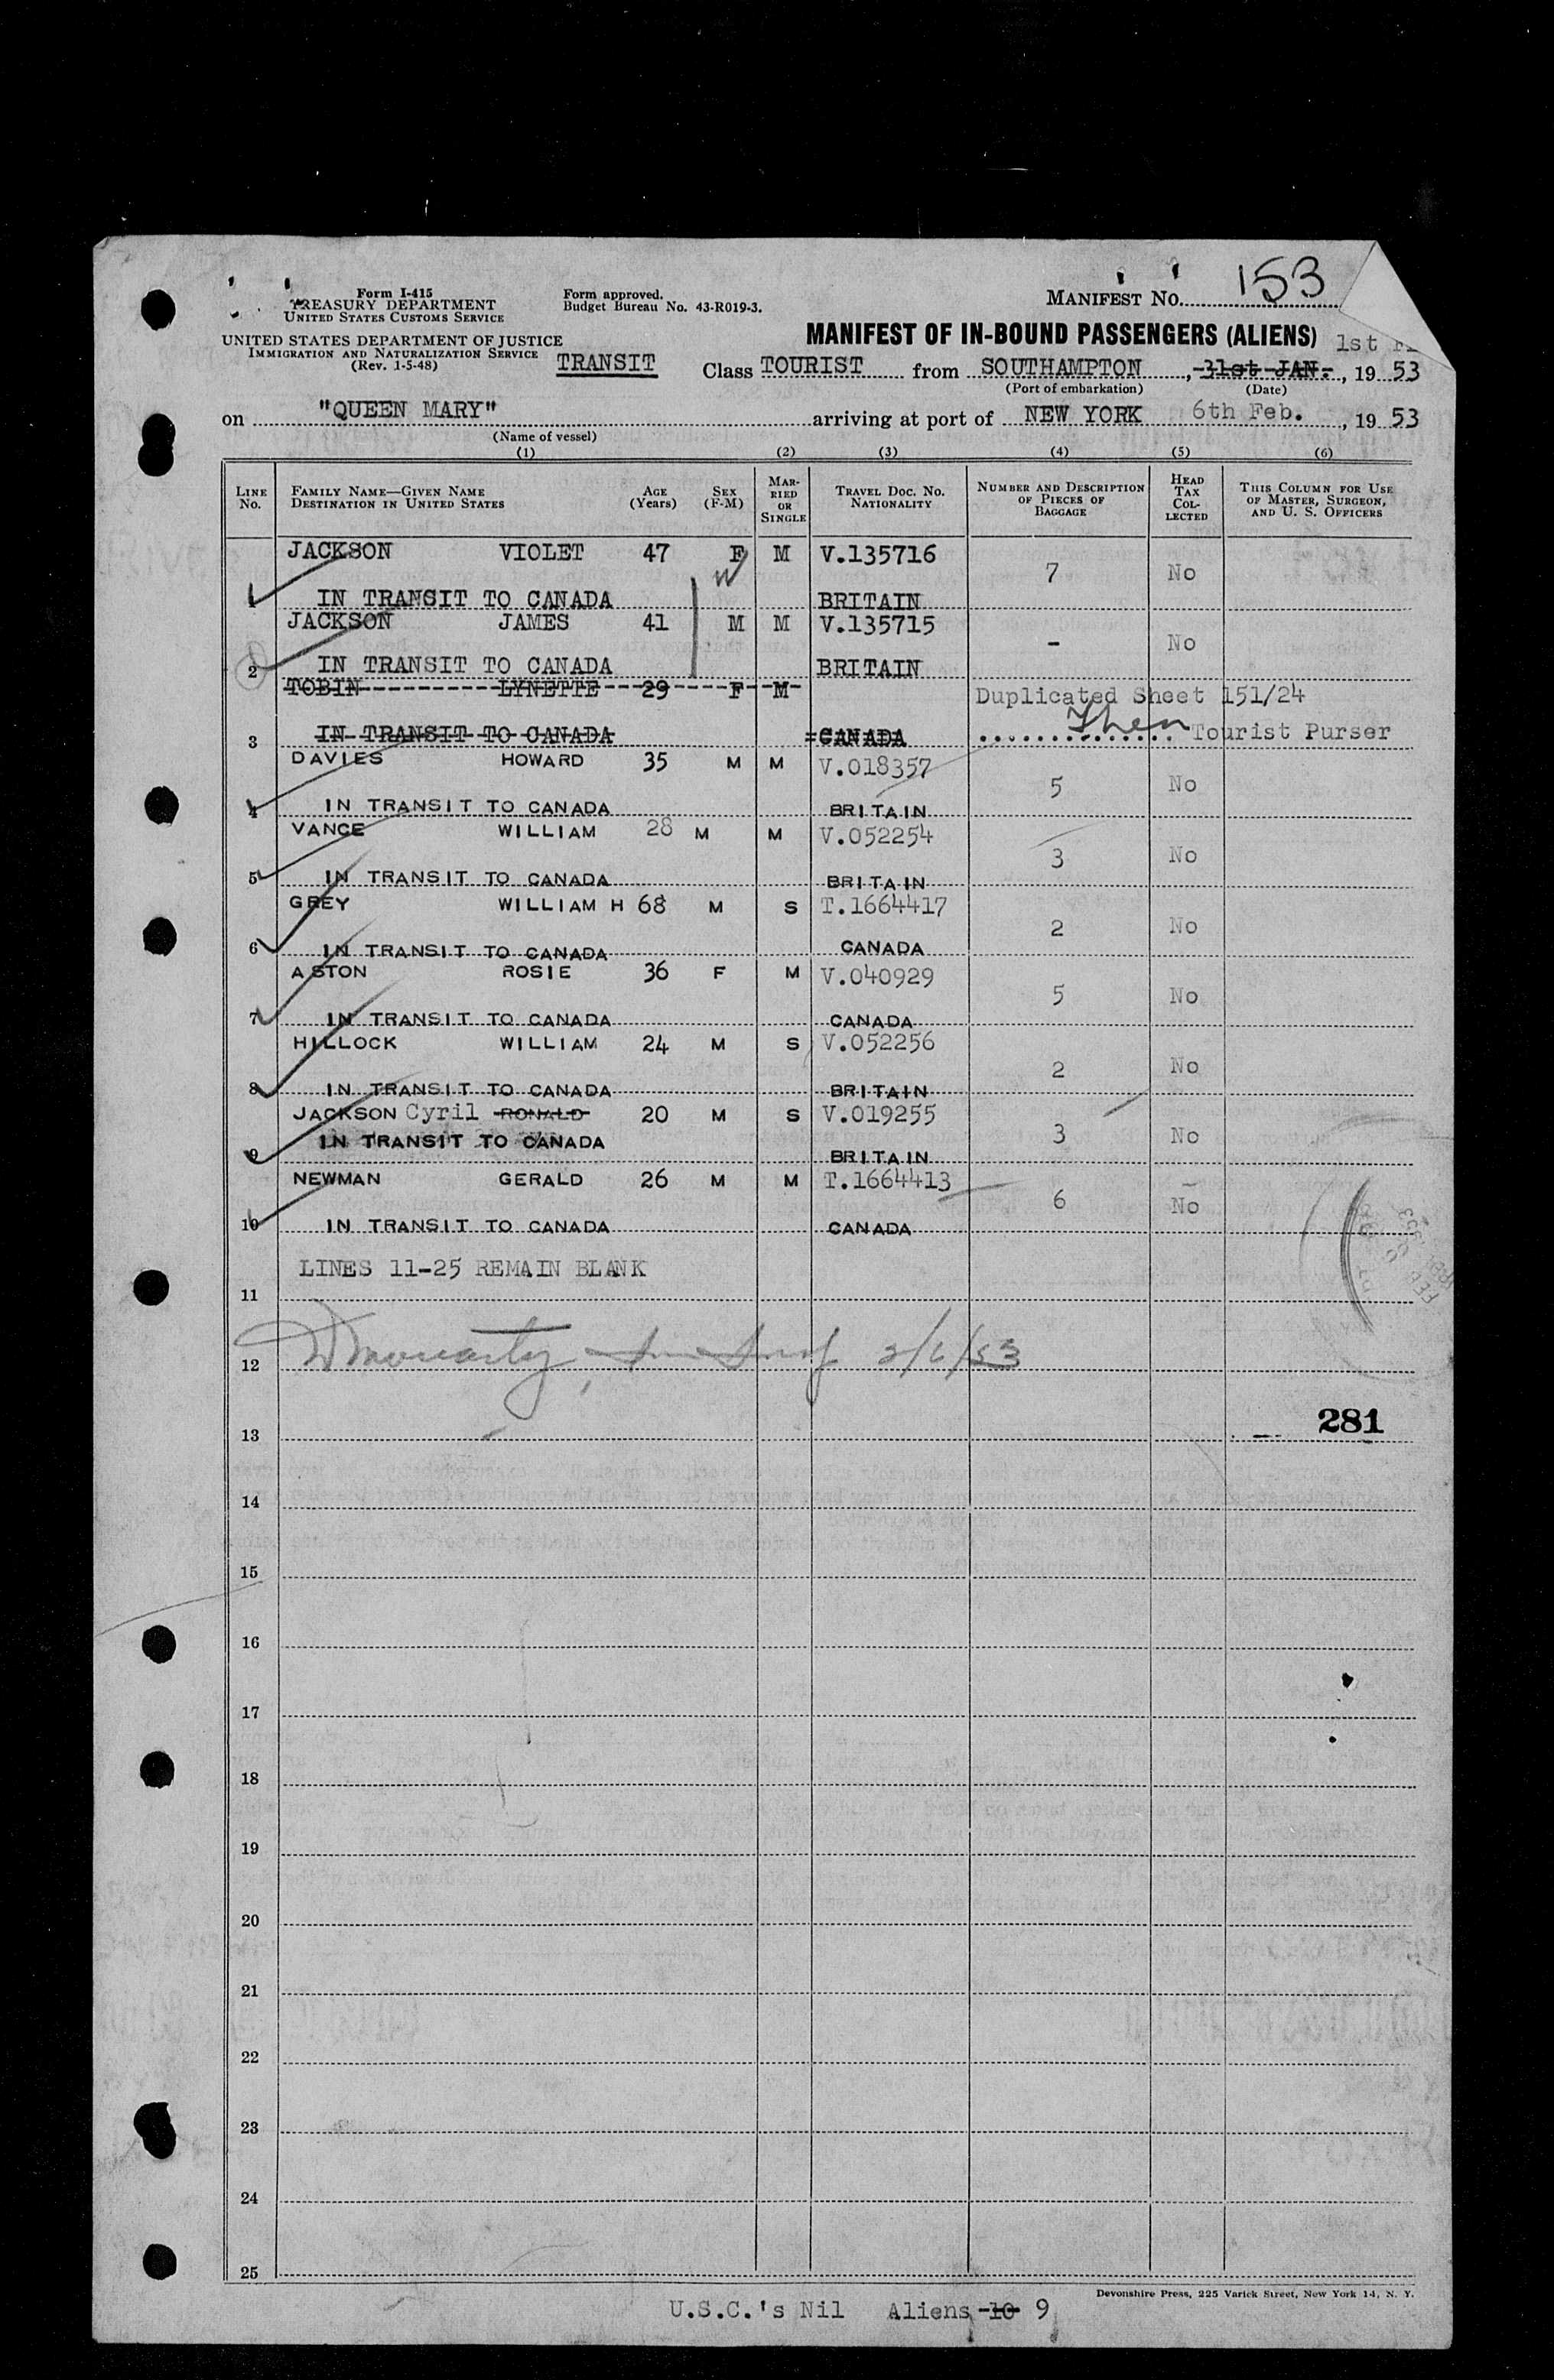 Form I-415
TREASURY DEPARTMENT
UNITED STATES CUSTOMS SERVICE
UNITED STATES DEPARTMENT OF JUSTICE
IMMIGRATION AND NATURALIZATION SERVICE
(Rev. 1-5-48)
Form approved.
Budget Bureau No. 43-R019-3.
MANIFEST NO. 153
MANIFEST OF IN-BOUND PASSENGERS (ALIENS)
1st
TRANSIT Class TOURIST from SOUTHAMPTON, 31st JAN., 19 53
(Port of embarkation) (Date)
on "QUEEN MARY" arriving at port of NEW YORK 6th Feb., 19 53
(Name of vessel)
(1) (2) (3) (4) (5) (6)
LINE NO. FAMILY NAME—GIVEN NAME DESTINATION IN UNITED STATES AGE (Years) SEX (F-M) MARRIED OR SINGLE TRAVEL DOC. NO. NATIONALITY NUMBER AND DESCRIPTION OF PIECES OF BAGGAGE HEAD TAX COLLECTED THIS COLUMN FOR USE OF MASTER, SURGEON, AND U. S. OFFICERS
JACKSON VIOLET 47 F M V.135716 7 No
W
1 IN TRANSIT TO CANADA BRITAIN
JACKSON JAMES 41 M M V.135715 - No
2 IN TRANSIT TO CANADA BRITAIN
TOBIN LYNETTE 29 F M Duplicated Sheet 151/24
3 IN TRANSIT TO CANADA CANADA Tourist Purser
DAVIES HOWARD 35 M M V.018357 5 No
4 IN TRANSIT TO CANADA BRITAIN
VANCE WILLIAM 28 M M V.052254 3 No
5 IN TRANSIT TO CANADA BRITAIN
GREY WILLIAM H 68 M S T.1664417 2 No
6 IN TRANSIT TO CANADA CANADA
ASTON ROSIE 36 F M V.040929 5 No
7 IN TRANSIT TO CANADA CANADA
HILLOCK WILLIAM 24 M S V.052256 2 No
8 IN TRANSIT TO CANADA BRITAIN
JACKSON Cyril RONALD 20 M S V.019255 3 No
9 IN TRANSIT TO CANADA BRITAIN
NEWMAN GERALD 26 M M T.1664413 6 No
10 IN TRANSIT TO CANADA CANADA
LINES 11-25 REMAIN BLANK
11
12 2/6/53
281
13
14
15
16
17
18
19
20
21
22
23
24
25
Devonshire Press, 225 Varick Street, New York 14, N. Y.
U.S.C.'s Nil Aliens 10 9